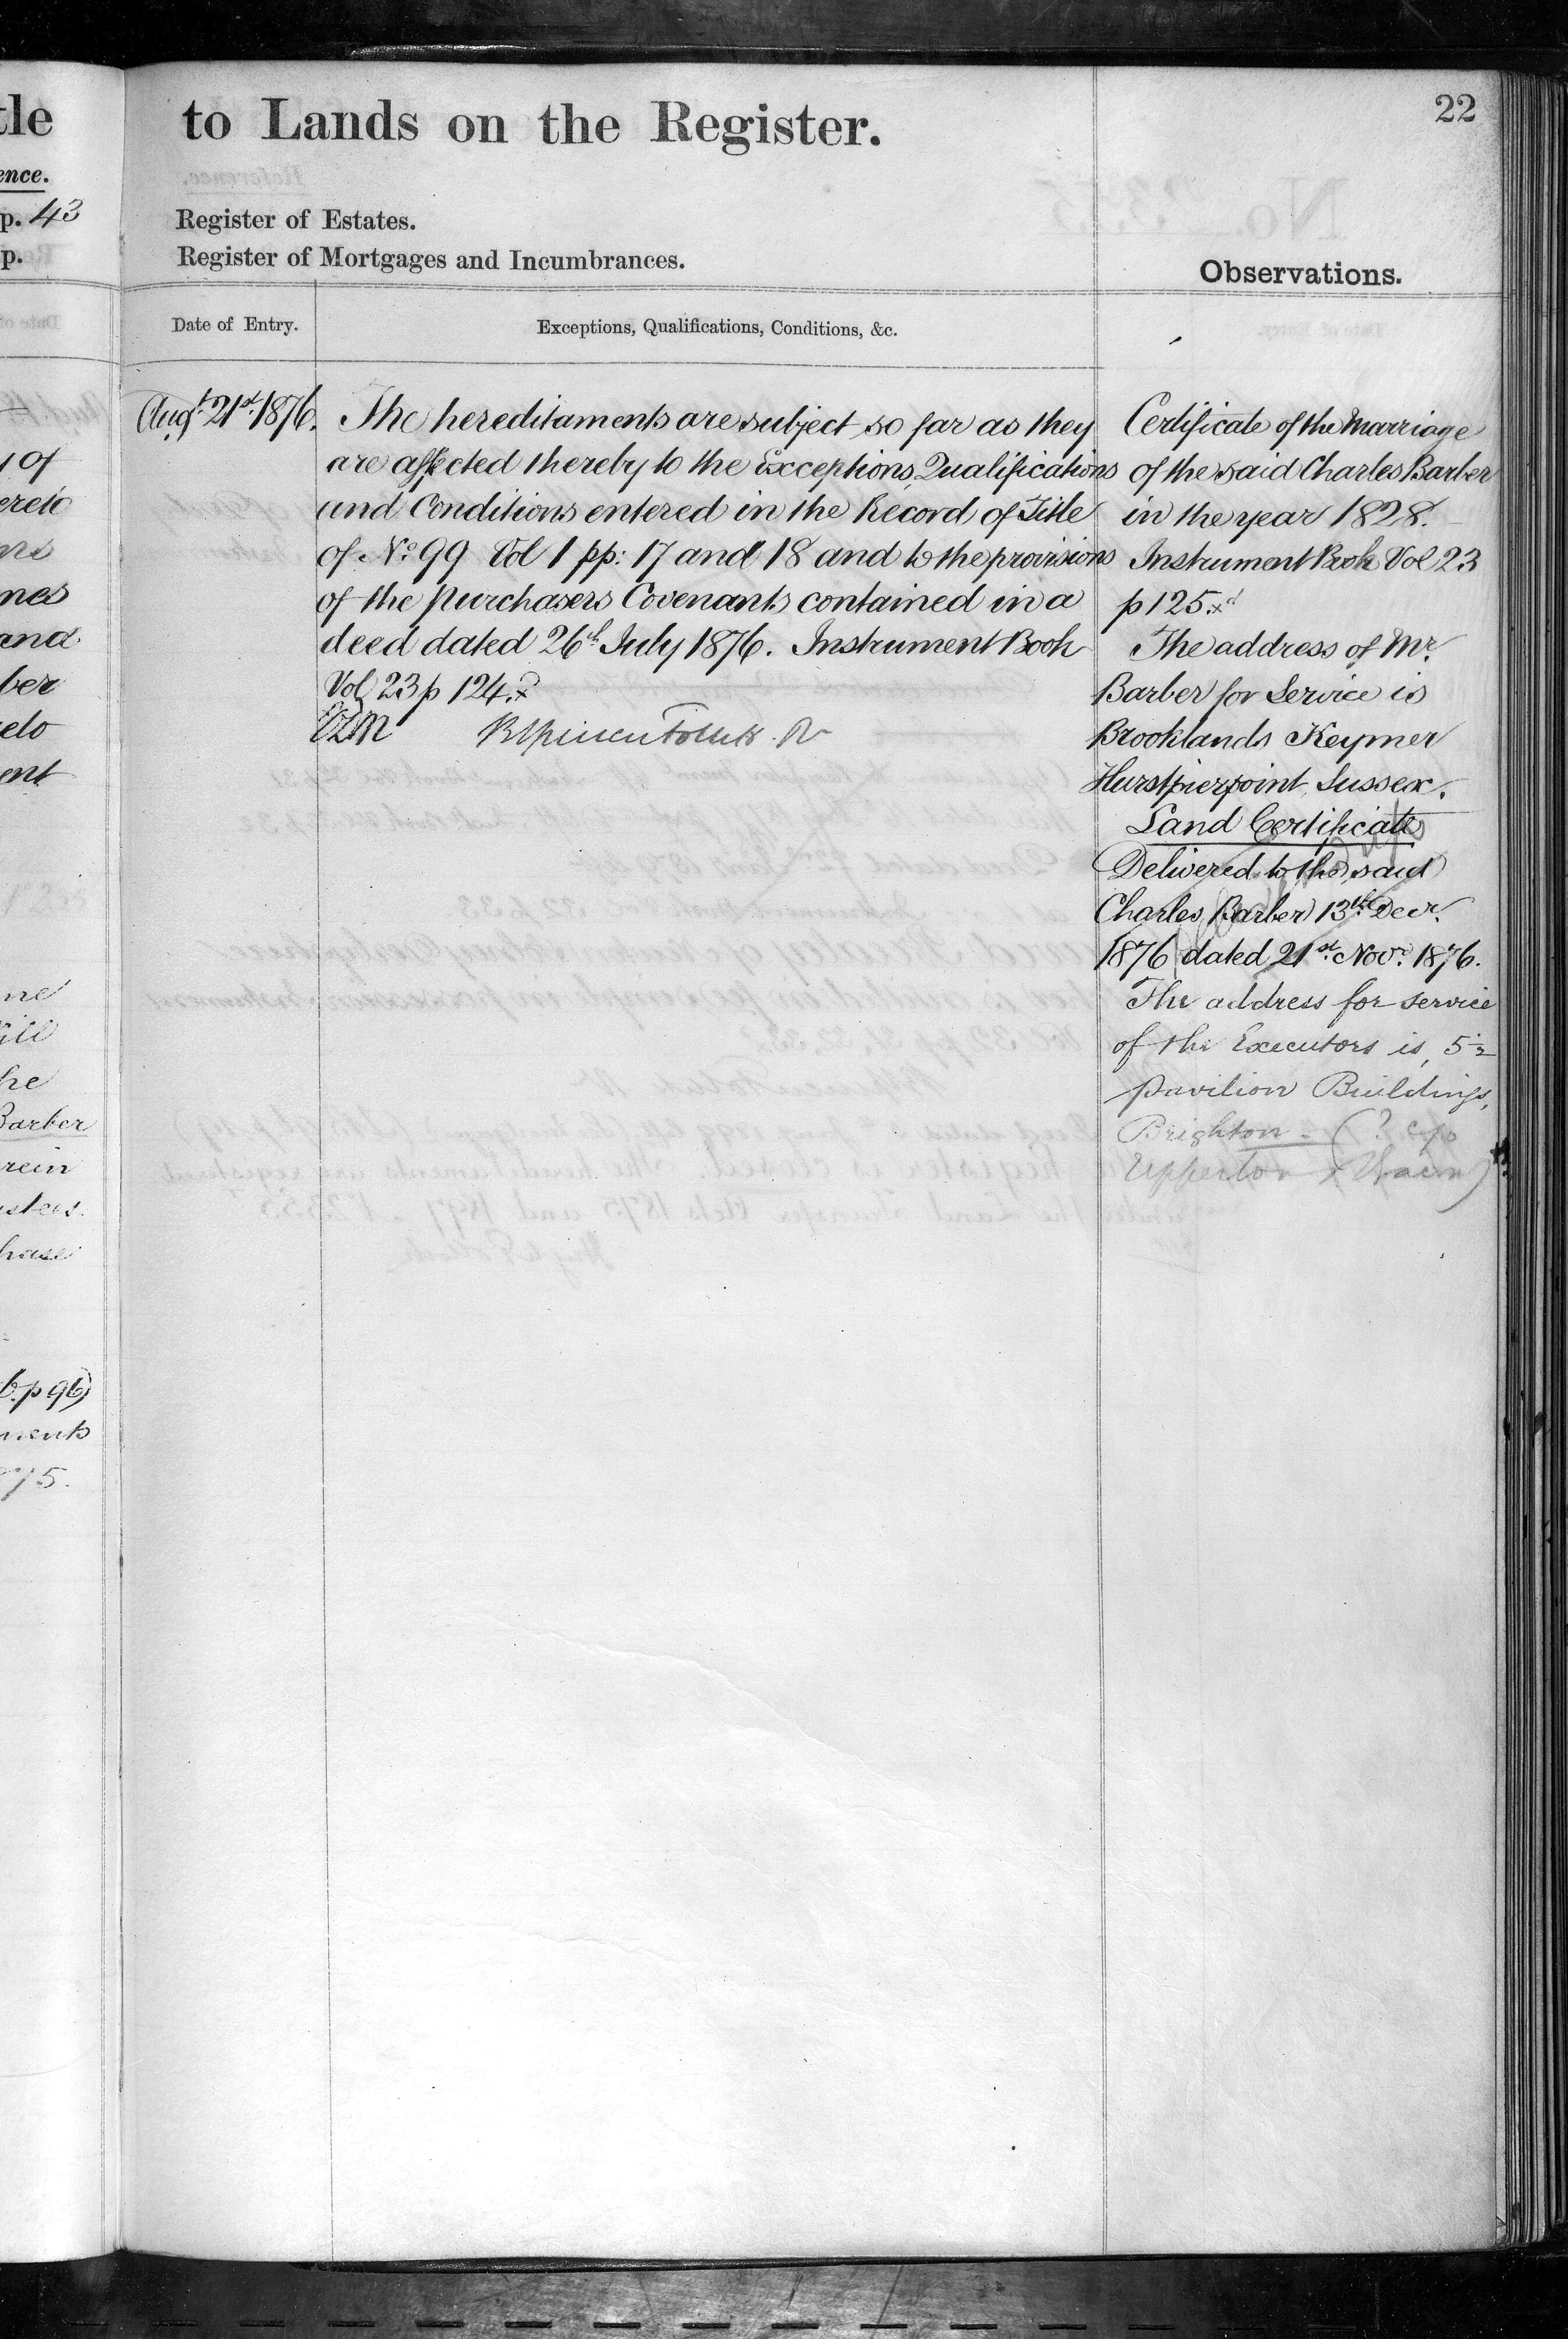 tle
ence.
p. 43
p.
1 of
ereto
ns
nes
and
ber
elo
ent
me
ill
he
Barber
rein
ustees.
hase
b. p 96)
ments
875.
to Lands on the Register.
22
Register of Estates.
Register of Mortgages and Incumbrances.
Observations.
Date of Entry.
Exceptions, Qualifications, Conditions, &c.
Augt. 21st. 1876.
The hereditaments are subject so far as they
are affected thereby to the Exceptions, Qualifications
and Conditions entered in the Record of Title
of No. 99 Vol 1 pp: 17 and 18 and to the provisions
of the purchasers Covenants contained in a
deed dated 26th July 1876. Instrument Book
Vol 23 p 124.
Certificate of the Marriage
of the said Charles Barber
in the year 1828.
Instrument Book Vol 23
p 125.
The address of Mr.
Barber for Service is
Brooklands Keymer
Hurstpierpoint, Sussex.
Land Certificate
Delivered to the said
Charles Barber 13th. Decr.
1876 dated 21st. Novr. 1876.
The address for service
of the Executors is, 5½
Pavilion Buildings,
Brighton - (? c/o
Upperton &